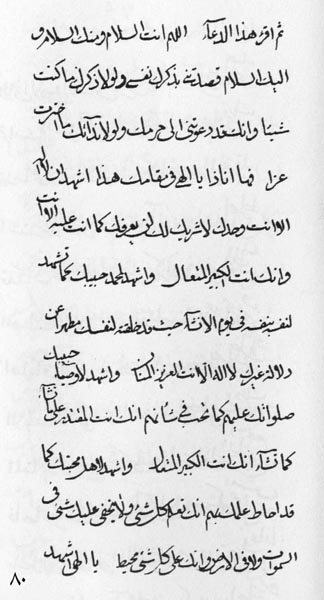 ثم اقرء هذا الدعآء اللهم انت السلام ومنك السلام و
اليك السلام قصدتك بذكرك نفسي ولولا ذكرك ما كنت
شيئا وانك قد دعوتني الى حرمك ولولا ندآئك ما
عزا فها اناذا يا الهي في مقامك هذا اشهد ان لا اله
الا انت وحدك لا شريك لك لن يعرفك كما انت عليه الا انت
وانك انت الكبير المتعال واشهد لمحمد حبيبك بما تشهد
لنفسه بنفسك في يوم الانشآء حيث قد خلقته لنفسك مطهرا عن
دلالة غيرك لا اله الا انت العزيز المنان واشهد لاوصيآء حبيبك
صلواتك عليهم كما تحب في شأنهم انك انت المقتدر على ما تشآء
كما تشآء انك انت الكبير المتعال واشهد لاهل محبتك كما
قد احاط علمك بهم انك تعلم كل شئ ولا يخفى عليك شئ في
السموات ولا في الارض وانك على كل شئ محيط يا الهي اشهد
٨٠